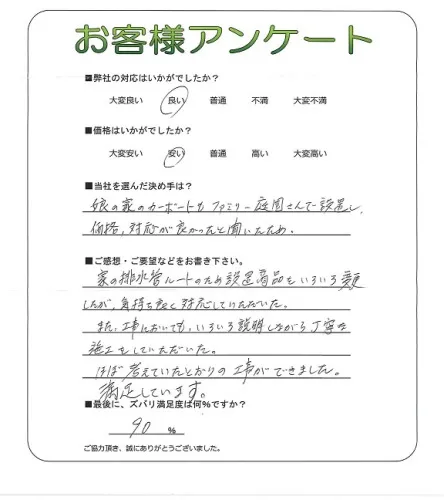 お客様アンケート
■弊社の対応はいかがでしたか?
大変良い 良い 普通 不満 大変不満
■価格はいかがでしたか?
大変安い 安い 普通 高い 大変高い
■当社を選んだ決め手は?
娘の家のカーポートもファミリー庭園さんで設置し、
価格,対応が良かったと聞いたため。
■ご感想・ご要望などをお書き下さい。
家の排水管ルートのため設置商品をいろいろ変更
したが、気持ち良く対応していただいた。
また、工事においても、いろいろ説明しながら丁寧な
施工をしていただいた。
ほぼ考えていたとおりの工事ができました。
満足しています。
■最後に、ズバリ満足度は何%ですか?
90 %
ご協力頂き、誠にありがとうございました。